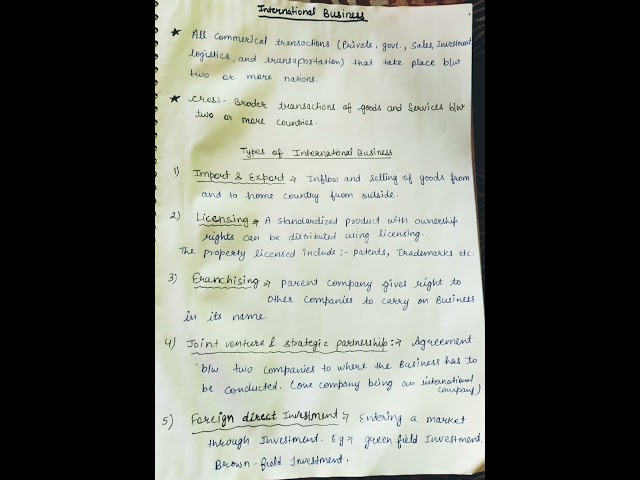 International Business
★ All commerical transactions (Private, govt., Sales, Investment
logistics, and transportation) that take place b/w
two or more nations.
★ cross-Broder transactions of goods and services b/w
two or more countries.
Types of International Business
1) Import & Export → Inflow and selling of goods from
and to home country from outside.
2) Licensing → A standardized product with ownership
rights can be distributed using licensing.
The property licensed include :- patents, Trademarks etc.
3) Franchising → parent company gives right to
other companies to carry on Business
in its name.
4) Joint venture & strategic partnership :→ Agreement
b/w two companies to where the Business has to
be conducted. (one company being an international
company)
5) Foreign direct Investment → Entering a market
through Investment. Eg → green field Investment,
Brown-field Investment.